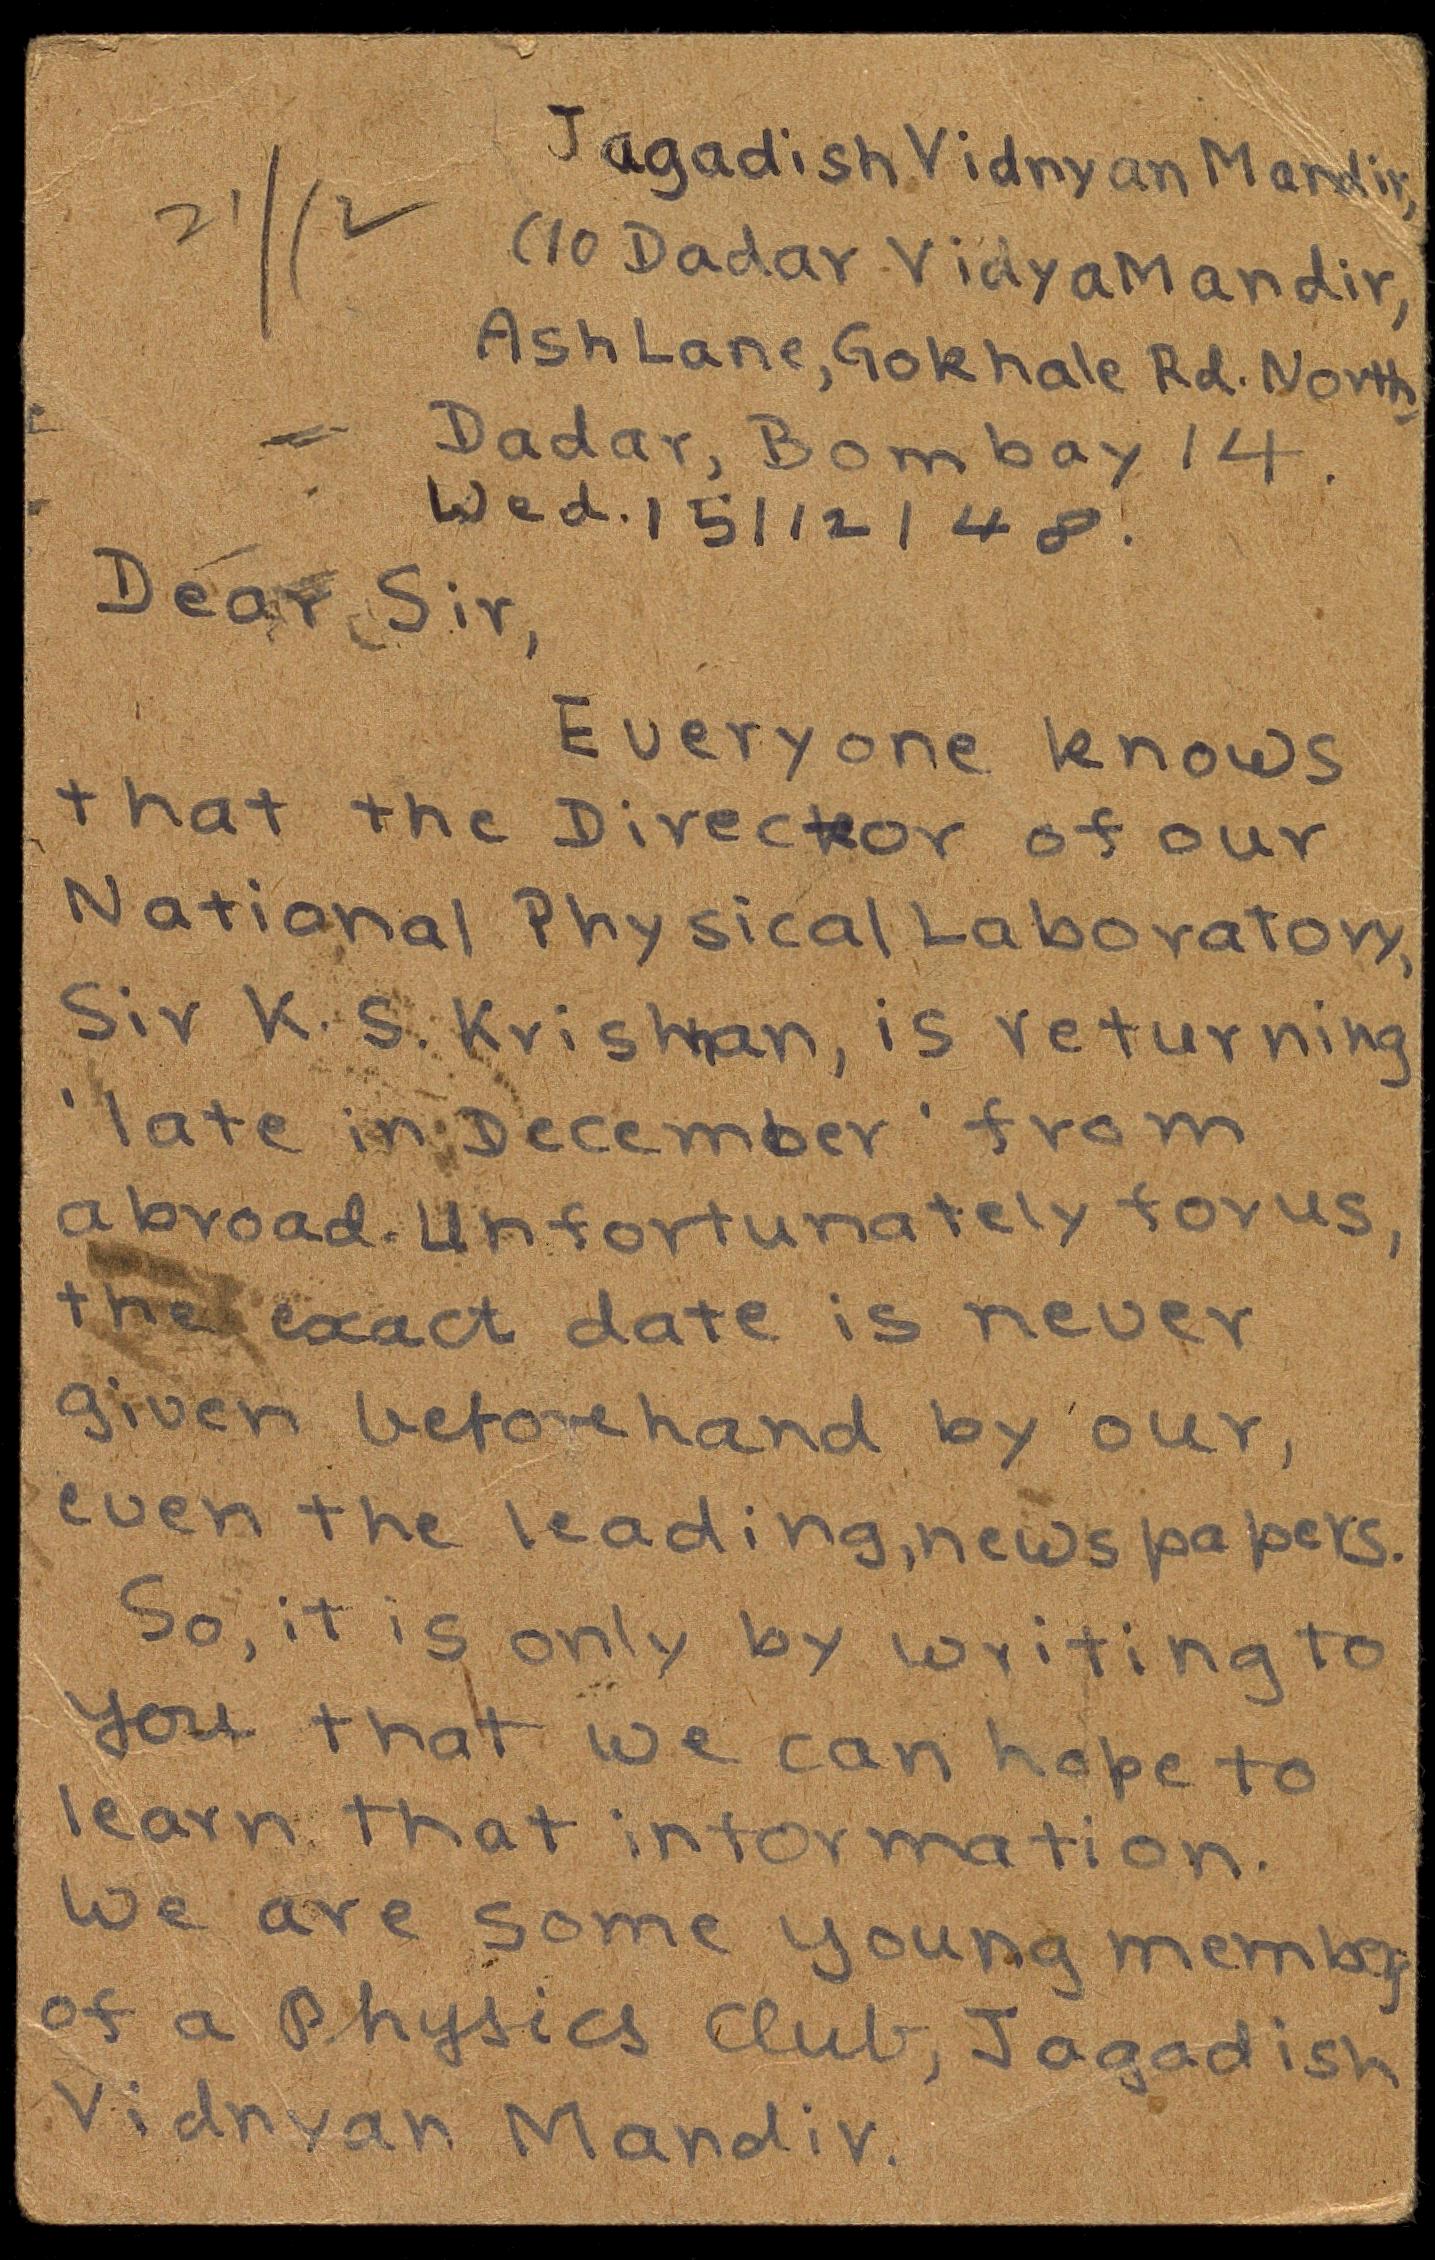 21/12
Jagadish Vidnyan Mandir,
C/o Dadar Vidya Mandir,
Ash Lane, Gokhale Rd. North,
Dadar, Bombay 14.
Wed. 15/12/48.
Dear Sir,
Everyone knows
that the Director of our
National Physical Laboratory,
Sir K. S. Krishnan, is returning
'late in December' from
abroad. Unfortunately for us,
the exact date is never
given beforehand by our,
even the leading, newspapers.
So, it is only by writing to
you that we can hope to
learn that information.
We are some young members
of a Physics Club, Jagadish
Vidnyan Mandir.